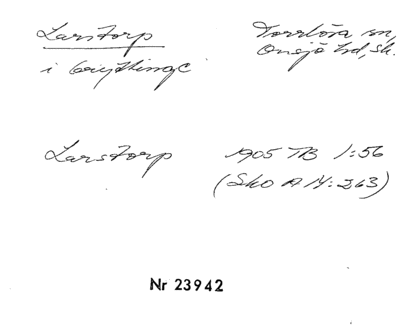 Larstorp
Torrlösa sn,
Onsjö hd, Sk.
i
Larstorp 1905 TB 1:56
(Sko A 14:263)
Nr 23942